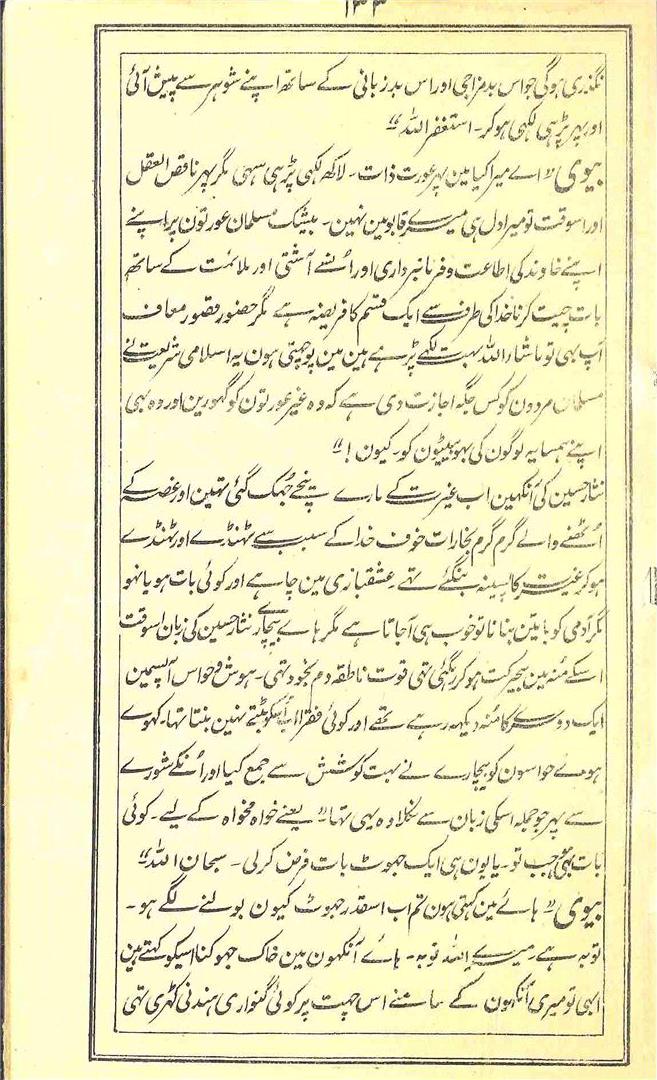 ۱۳۳
نگذری ہوگی جو اس بدمزاجی اور اس بدزبانی کے ساتھ اپنے شوہر سے پیش آئی
اور پہر پڑہی لکہی ہوکر۔ استغفر اللہ"
بیوی" اے میرا کیا مین پہر عورت ذات۔ لاکھ لکہی پڑہی سہی مگر پہر ناقص العقل
اور اسوقت تو میرا دل ہی میرے قابو مین نہین۔ بیشک مسلمان عورتون پر اپنے
اپنے خاوند کی اطاعت و فرمانبرداری اور اُنسے آشتی اور ملائمت کے ساتھ
بات چیت کرنا خدا کی طرف سے ایک قسم کا فریضہ ہے مگر حضور قصور معاف
آپ بہی تو ماشاراللہ بہت لکھے پڑہے ہین مین پوچہتی ہون یہ اسلامی شریعت نے
مسلمان مردون کو کس جگہ اجازت دی ہے کہ وہ غیر عورتون کو گہورین اور وہ بہی
اپنے ہمسایہ لوگون کی بہو بیٹیون کو۔ کیون!"
نثار حسین کی آنکہین اب غیرت کے مارے نیچے جُہک گئی تہین اور غصہ کے
اُٹھنے والے گرم گرم بخارات خوف خدا کے سبب سے ٹہنڈے اور ٹہنڈے
ہوکر غیرت کا پسینہ بنگئے تہے۔ عشقبازی مین چاہے اور کوئی بات ہو یا نہو
مگر آدمی کو باتین بنانا تو خوب ہی آجاتا ہے مگر ہاے بیچارے نثار حسین کی زبان اسوقت
اسکے مُنہ مین بیحرکت ہوکر رہگئی تہی قوت ناطقہ دم بخود تہی۔ ہوش و حواس آپسمین
ایک دوسرے کا مُنہ دیکہہ رہے تھے اور کوئی فقرا اب اُسکو بنتے نہین بنتا تہا۔ کہوے
ہوے حواسون کو بیچارے نے بہت کوشش سے جمع کیا اور اُنکے شورے
سے پہر جو جملہ اسکی زبان سے نکلا وہ یہی تہا" یعنے خواہ مخواہ کے لیے۔ کوئی
بات بہی ہو جب تو۔ یا یون ہی ایک جہوٹ بات فرض کرلی۔ سبحان اللہ"
بیوی" ہائے مین کہتی ہون تم اب اسقدر جہوٹ کیون بولنے لگے ہو۔
توبہ ہے۔ میرے اللہ توبہ۔ ہاے آنکہون مین خاک جہوکنا اسیکو کہتے ہین
ابہی تو میری آنکہون کے سامنے اس چہت پر کوئی گنواری ہندنی کہڑی تہی